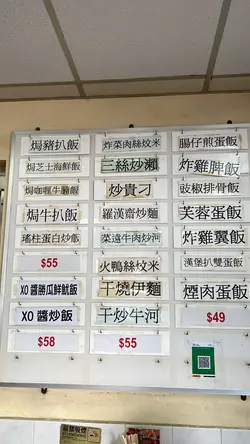 焗豬扒飯
焗芝士海鮮飯
焗咖喱牛腩飯
焗牛扒飯
瑤柱蛋白炒飯
$55
XO醬勝瓜鮮魷飯
XO醬炒飯
$58
炸菜肉絲炆米
三絲炒瀨
炒貴刁
羅漢齋炒麵
菜遠牛肉炒河
火鴨絲炆米
干燒伊麵
干炒牛河
$55
腸仔煎蛋飯
炸雞脾飯
豉椒排骨飯
芙蓉蛋飯
炸雞翼飯
漢堡扒雙蛋飯
煙肉蛋飯
$49